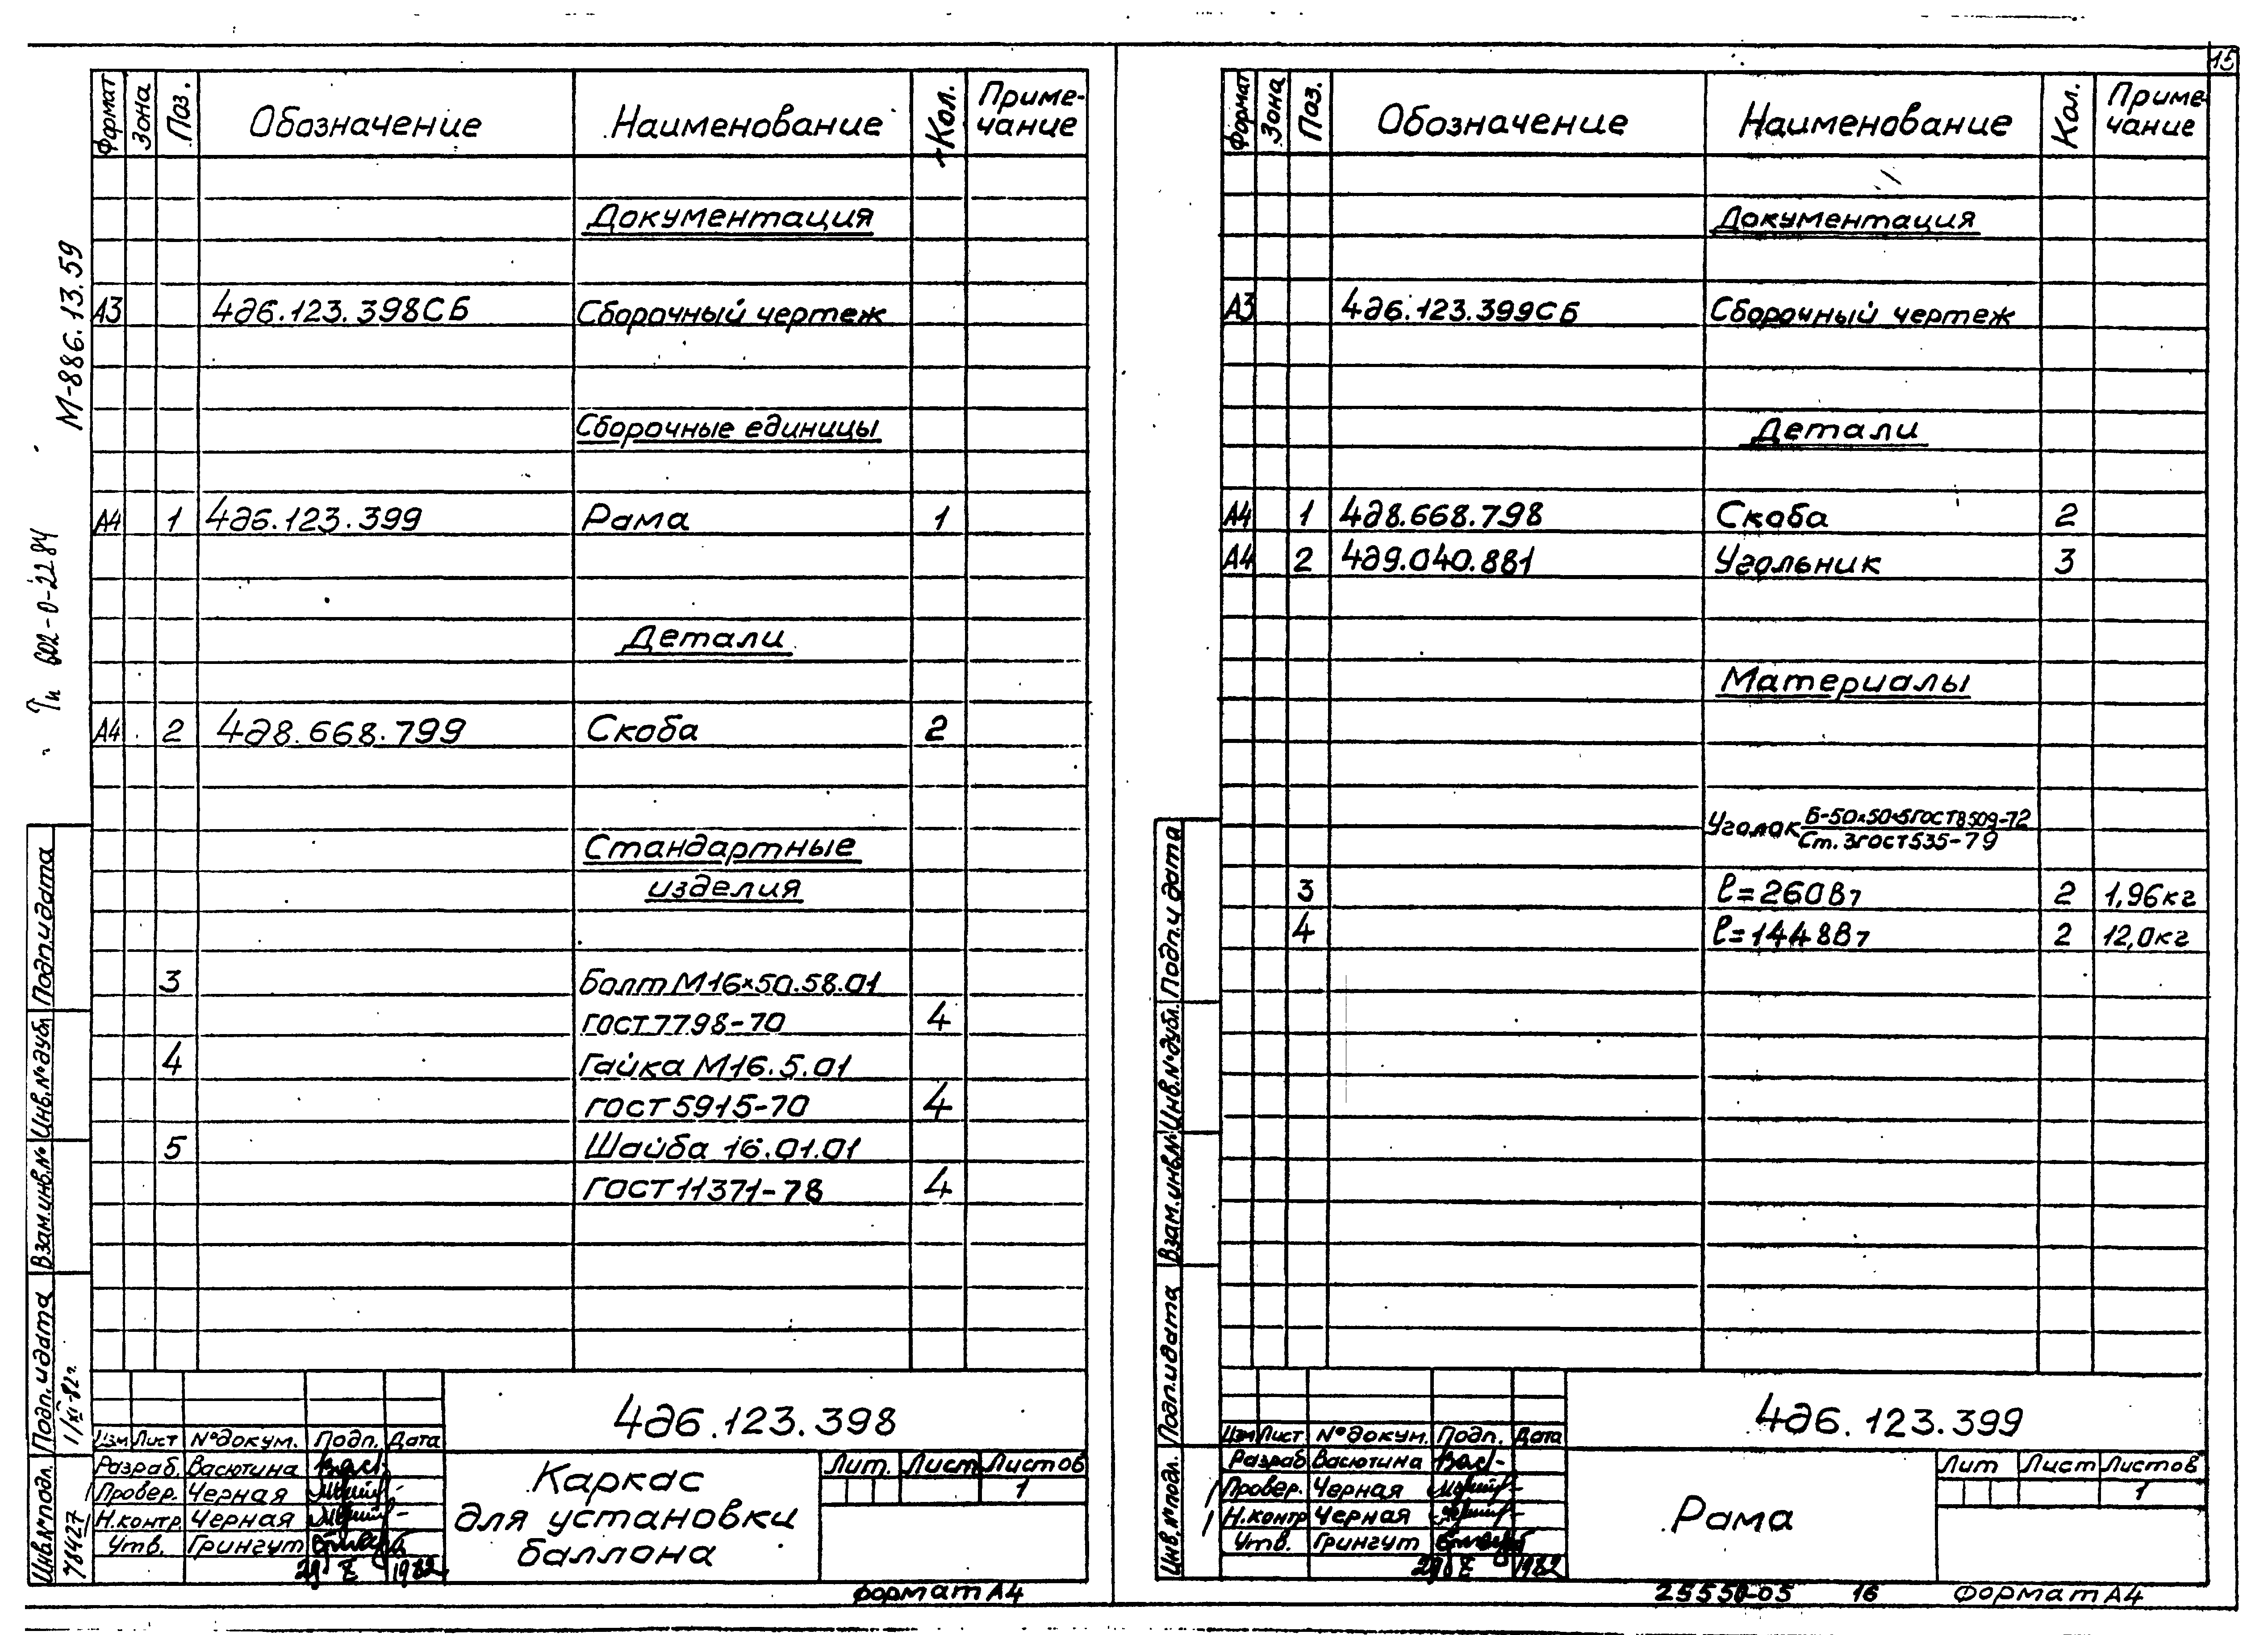 15
Формат Зона Поз. Обозначение Наименование Кол. Приме-
чание
Документация
А3 4д6.123.398СБ Сборочный чертеж
Сборочные единицы
А4 1 4д6.123.399 Рама 1
Детали
А4 2 4д8.668.799 Скоба 2
Стандартные
изделия
3 Болт М16×50.58.01
ГОСТ 7798-70 4
4 Гайка М16.5.01
ГОСТ 5915-70 4
5 Шайба 16.01.01
ГОСТ 11371-78 4
М-886.13.59
602-0-22.84
Подп. и дата
Инв.№дубл.
Взам.инв.№
Подп. и дата
Инв.№подл.
78427
4д6.123.398
Изм Лист №докум. Подп. Дата
Разраб. Васютина
Провер. Черная
Н.контр Черная
Утв. Грингут
1982
Каркас
для установки
баллона
Лит. Лист Листов
1
Формат А4
Формат Зона Поз. Обозначение Наименование Кол. Приме-
чание
Документация
А3 4д6.123.399СБ Сборочный чертеж
Детали
А4 1 4д8.668.798 Скоба 2
А4 2 4д9.040.881 Угольник 3
Материалы
Уголок Б-50×50×5 ГОСТ 8509-72
Ст. 3 ГОСТ 535-79
3 ℓ=260В7 2 1,96кг
4 ℓ=1448В7 2 12,0кг
Подп. и дата
Инв.№дубл.
Взам.инв.№
Подп. и дата
Инв.№подл.
4д6.123.399
Изм Лист №докум. Подп. Дата
Разраб Васютина
Провер. Черная
Н.контр Черная
Утв. Грингут
1982
Рама
Лит Лист Листов
1
25550-05 16 Формат А4